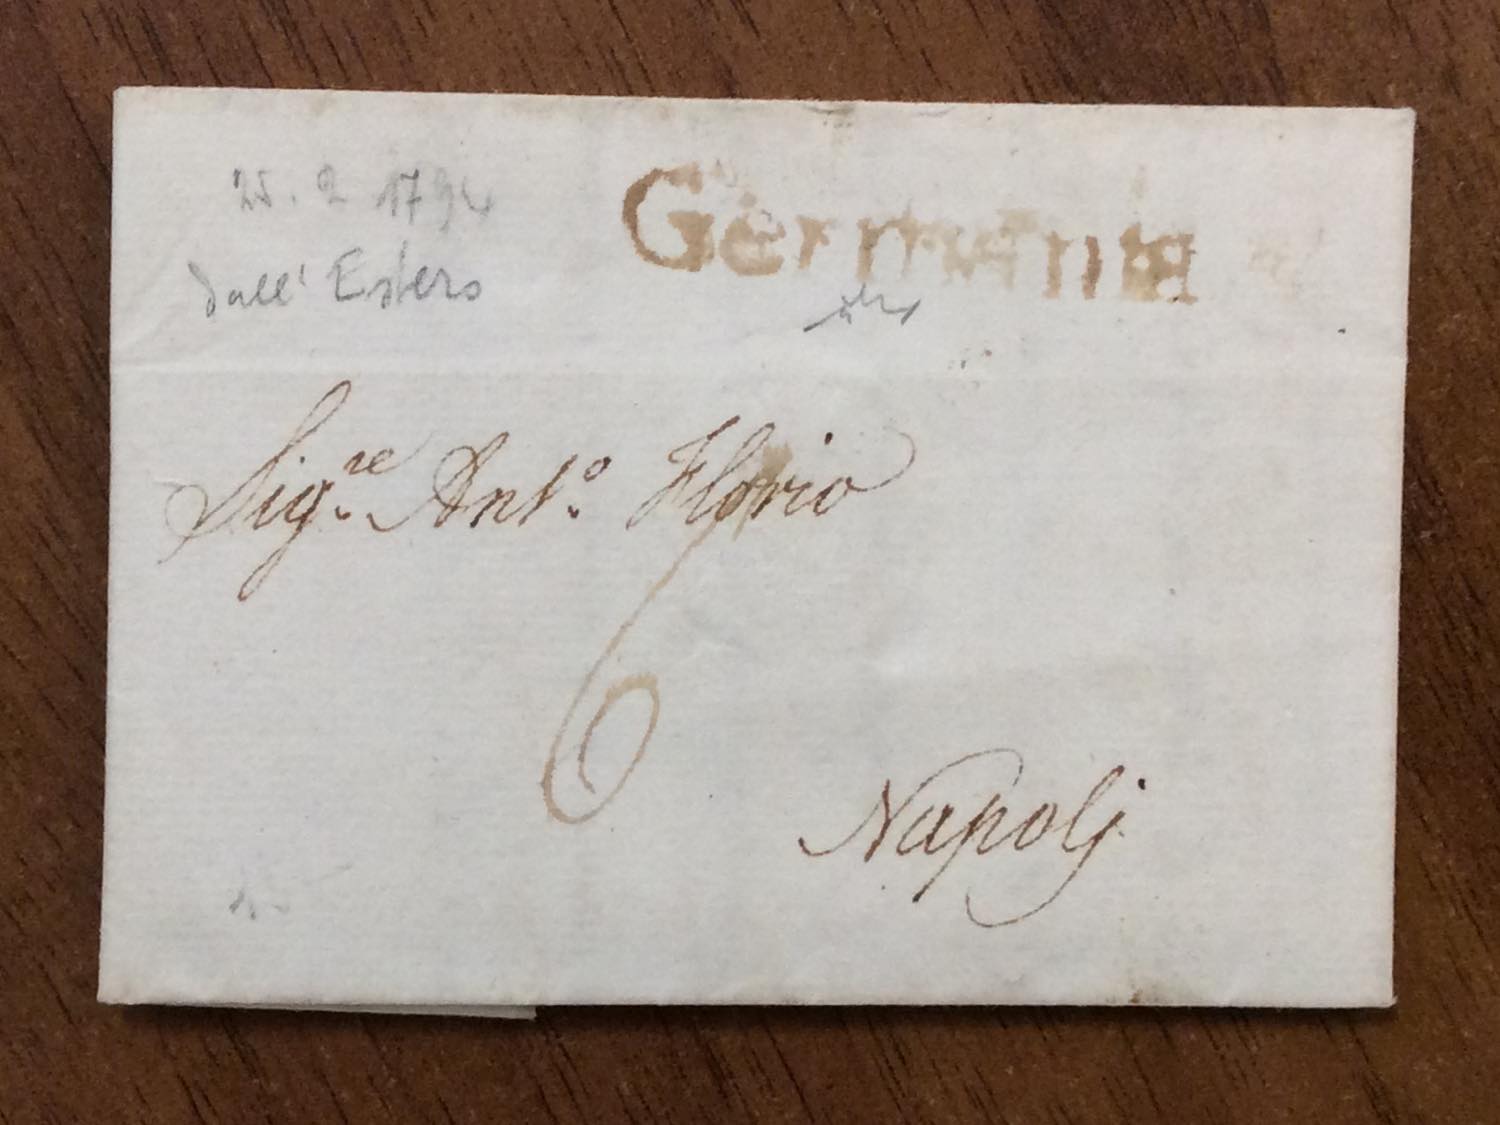 25. 2 1794
dall' Estero
Germania
Sig.re Ant.o Florio
6
Napolj